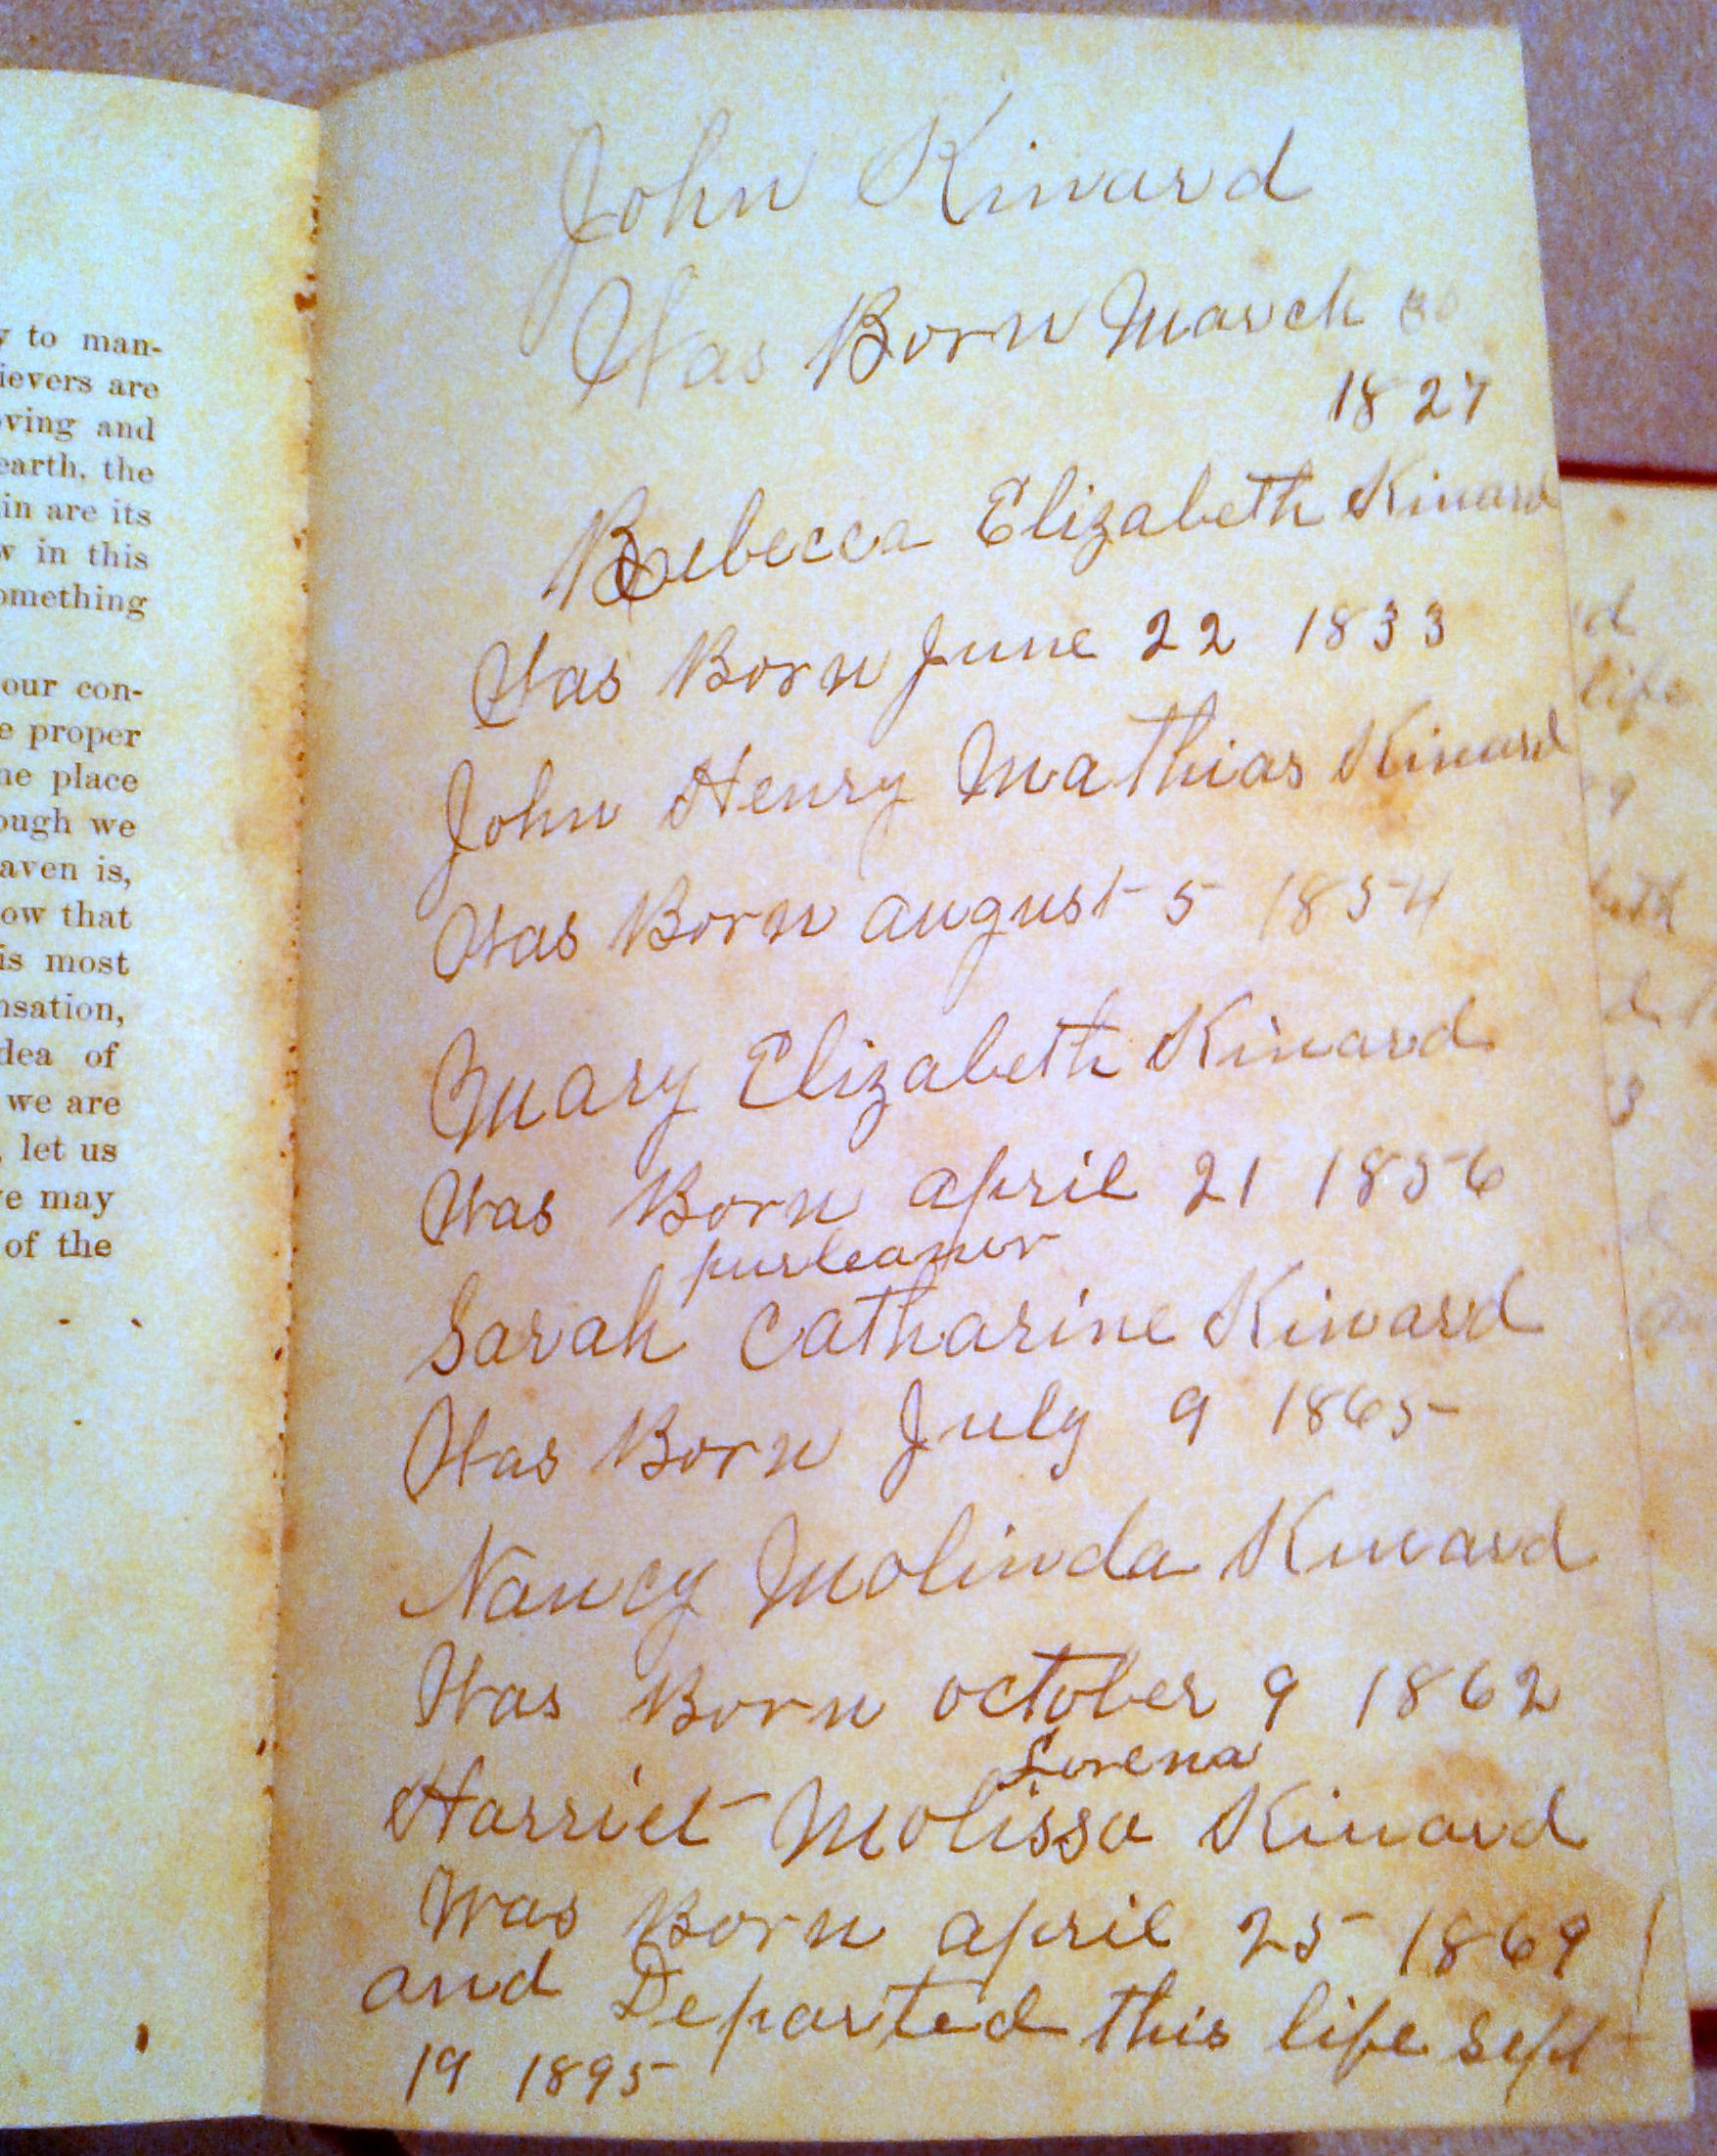 y to man-
ievers are
oving and
earth, the
in are its
w in this
omething
our con-
e proper
ne place
ough we
aven is,
ow that
is most
nsation,
dea of
we are
, let us
ve may
of the
John Kinard
Was Born March 30
1827
Rebecca Elizabeth Kinard
Was Born June 22 1833
John Henry Mathias Kinard
Was Born august 5 1854
Mary Elizabeth Kinard
Was Born april 21 1856
Sarah Catharine Kinard
Was Born July 9 1865
Nancy Molinda Kinard
Was Born october 9 1862
Lorena
Harriet Molissa Kinard
Was Born april 25 1869
and Departed this life Sept
19 1895
d
life
9
beth
d
3